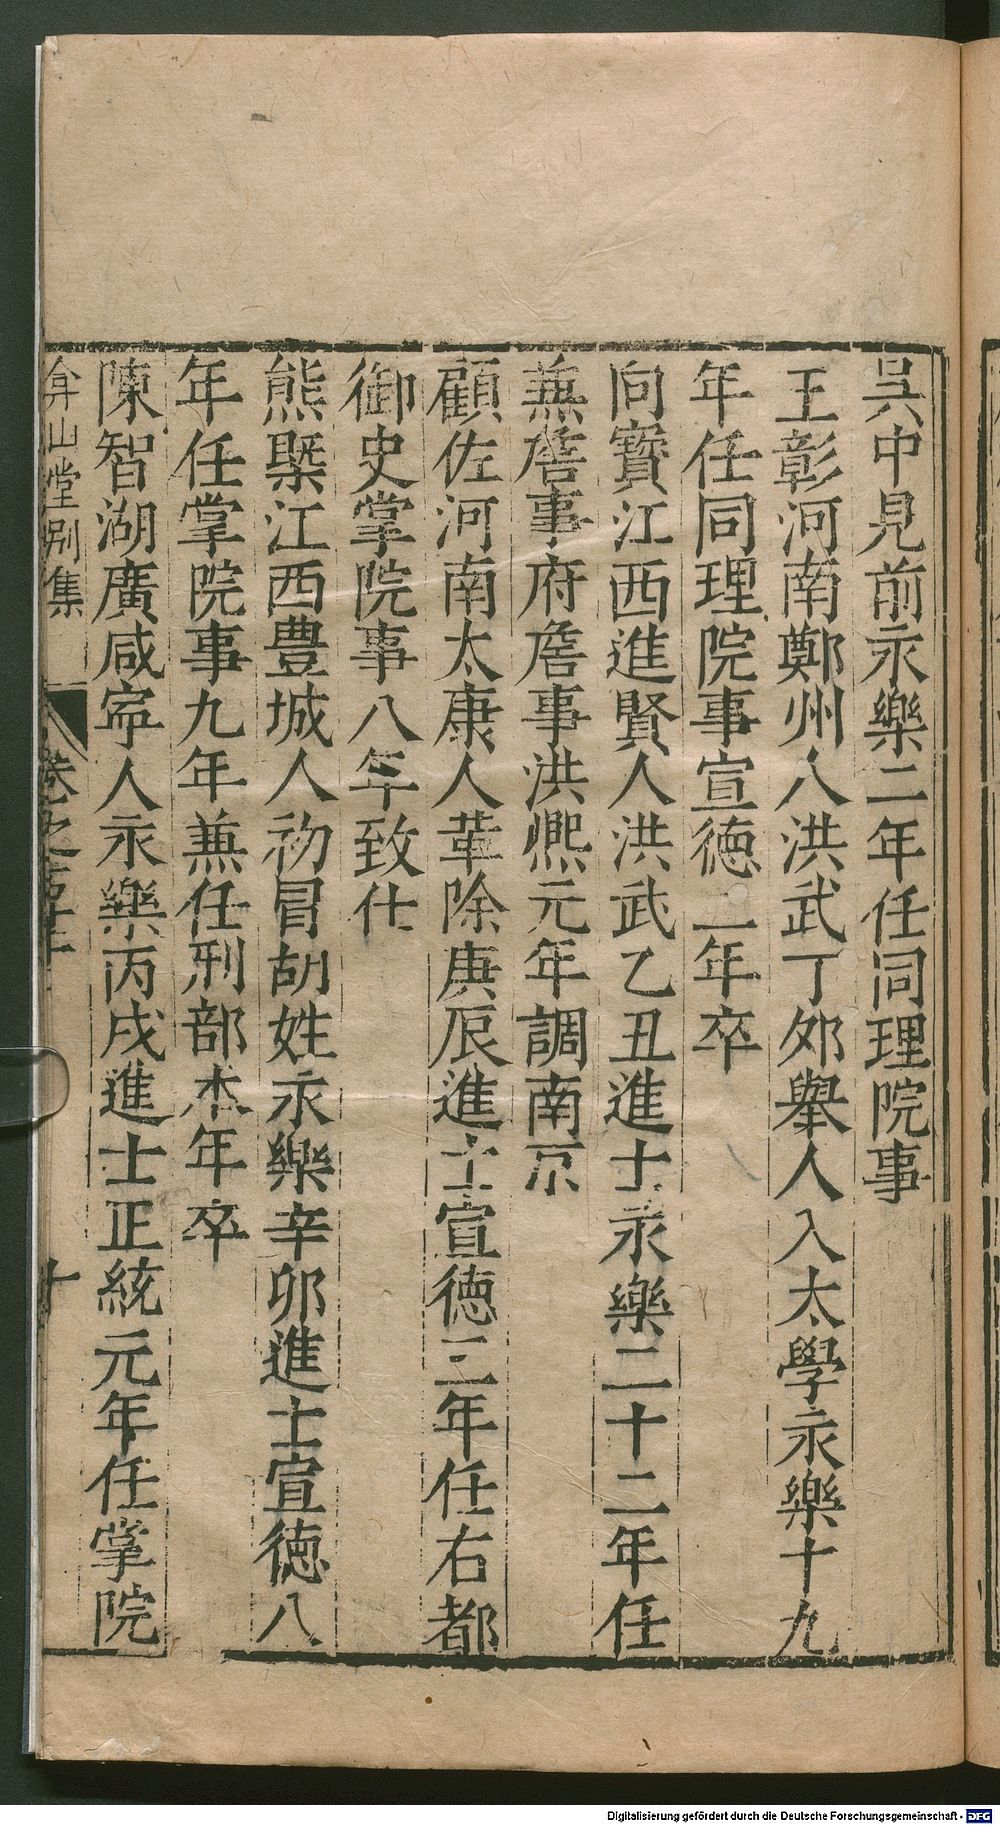 吳中見前永樂二年任同理院事
王彰河南鄭州人洪武丁夘舉人入太學永樂十九
年任同理院事宣德二年卒
向寶江西進賢人洪武乙丑進士永樂二十二年任
兼詹事府詹事洪熙元年調南京
顧佐河南太康人革除庚辰進士宣德三年任右都
御史掌院事八年致仕
熊槩江西豊城人初冒胡姓永樂辛卯進士宣德八
年任掌院事九年兼任刑部本年卒
陳智湖廣咸寜人永樂丙戌進士正統元年任掌院
弇山堂别集 卷之 十
Digitalisierung gefördert durch die Deutsche Forschungsgemeinschaft - DFG